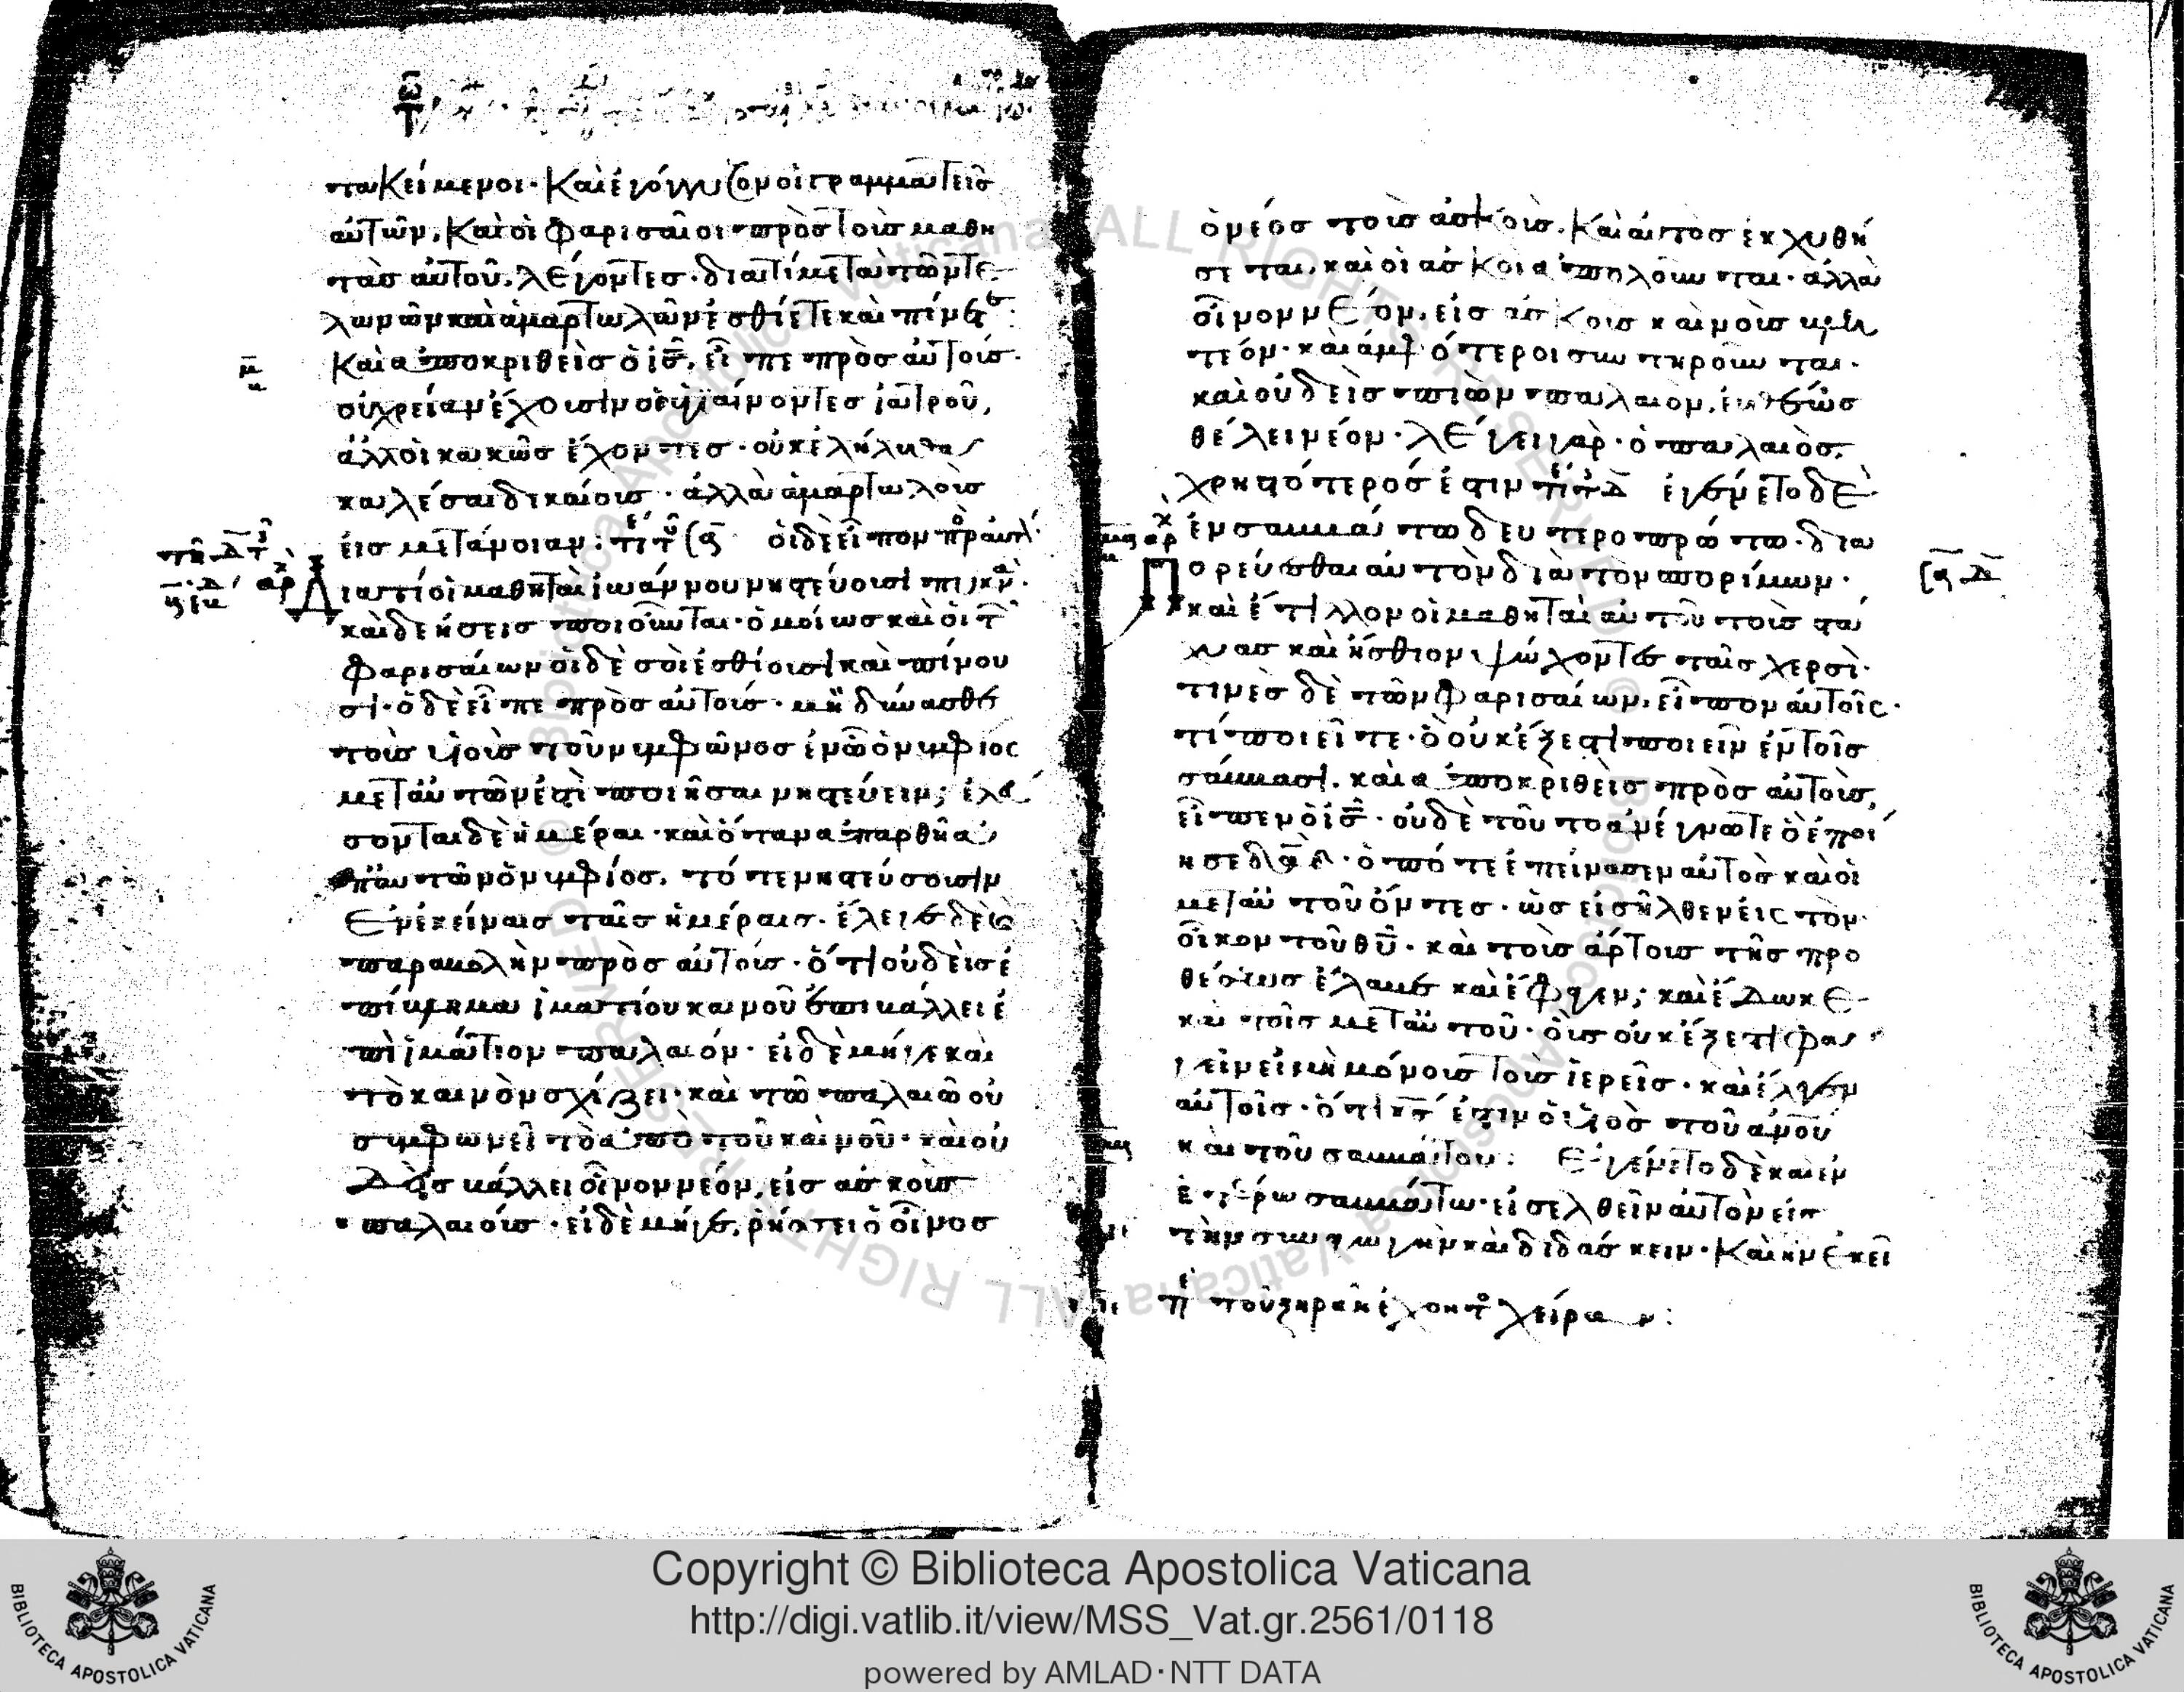 τακείμενοι· Καὶ ἐγόγγυζον οἱ γραμματεῖς
αὐτῶν, Καὶ οἱ Φαρισαῖοι πρὸς τοὺς μαθη
τὰς αὐτοῦ, λέγοντες· διατί μετὰ τῶν τε
λωνῶν καὶ ἁμαρτωλῶν ἐσθίετε καὶ πίνετε
Καὶ ἀποκριθεὶς ὁ ις, εἶπε πρὸς αὐτούς·
οὐ χρείαν ἔχουσιν οἱ ὑγιαίνοντες ἰατροῦ,
ἀλλ οἱ κακῶς ἔχοντες· οὐκ ἐλήλυθα
καλέσαι δικαίους· ἀλλὰ ἁμαρτωλοὺς
εἰς μετάνοιαν: οἱ δὲ εἶπον πρ αυτ
Διατί οἱ μαθηταὶ ἰωάννου νηστεύουσι πυκν
καὶ δεήσεις ποιοῦνται· ὁμοίως καὶ οἱ τ
Φαρισαίων οἱ δὲ σοὶ ἐσθίουσι καὶ πίνου
σι· ὁ δὲ εἶπε πρὸς αὐτούς· μὴ δύνασθε
τοὺς υἱοὺς τοῦ νυμφῶνος ἐν ὧ ὁ νυμφίος
μετ αὐτῶν ἐστὶ ποιῆσαι νηστεύειν; ἐλεύ
σονται δὲ ἡμέραι· καὶ ὅταν ἀπαρθῆ ἀ
π αὐτῶν ὁ νυμφίος, τότε νηστεύσουσιν
Ἐν ἐκείναις ταῖς ἡμέραις· ἔλεγε δὲ
παραβολὴν πρὸς αὐτούς· ὅτι οὐδεὶς ἐ
πίβλημα ἱματίου καινοῦ ἐπιβάλλει ἐ
πὶ ἱμάτιον παλαιόν· εἰ δὲ μήγε καὶ
τὸ καινὸν σχίζει· καὶ τῶ παλαιῶ οὐ
συμφωνεῖ τὸ ἀπὸ τοῦ καινοῦ· καὶ οὐ
Δεὶς βάλλει οἶνον νέον, εἰς ἀσκοὺς
παλαιούς· εἰ δὲ μήγε, ῥήσσει ὁ οἶνος
ὁ νέος τοὺς ἀσκούς, Καὶ αὐτὸς ἐκχυθή
σεται, καὶ οἱ ἀσκοὶ ἀπολοῦνται· ἀλλὰ
οἶνον νέον, εἰς ἀσκοὺς καινοὺς βλη
τέον· καὶ ἀμφότεροι συντηροῦνται·
καὶ οὐδεὶς πιὼν παλαιὸν, εὐθέως
θέλει νέον· λέγει γὰρ· ὁ παλαιὸς,
χρηστότερός ἐστιν ἐγένετο δὲ
ἐν σαββάτω δευτεροπρώτω· δια
πορεύεσθαι αὐτὸν διὰ τῶν σπορίμων·
καὶ ἔτιλλον οἱ μαθηταὶ αὐτοῦ τοὺς στά
χυας καὶ ἤσθιον, ψώχοντες ταῖς χερσί·
τινὲς δὲ τῶν Φαρισαίων, εἶπον αὐτοῖς·
τί ποιεῖτε· ὃ οὐκ ἔξεστι ποιεῖν ἐν τοῖς
σάββασι, καὶ ἀποκριθεὶς πρὸς αὐτοὺς,
εἶπεν ὁ ις· οὐδὲ τοῦτο ἀνέγνωτε ὃ ἐποί
ησε δαδ· ὁπότε ἐπείνασεν αὐτὸς καὶ οἱ
μετ αὐτοῦ ὄντες· ὡς εἰσῆλθεν εἰς τὸν
οἶκον τοῦ θυ· καὶ τοὺς ἄρτους τῆς προ
θέσεως ἔλαβε καὶ ἔφαγεν; καὶ ἔδωκε
καὶ τοῖς μετ αὐτοῦ· οὓς οὐκ ἔξεστι φα
γεῖν εἰ μὴ μόνους τοὺς ἱερεῖς· καὶ ἔλεγεν
αὐτοῖς· ὅτι κς ἐστιν ὁ υἱὸς τοῦ ανου
καὶ τοῦ σαββάτου: Ἐγένετο δὲ καὶ ἐν
ἑτέρω σαββάτω· εἰσελθεῖν αὐτὸν εἰς
τὴν συναγωγὴν καὶ διδάσκειν· Καὶ ἦν ἐκεῖ
Copyright © Biblioteca Apostolica Vaticana
http://digi.vatlib.it/view/MSS_Vat.gr.2561/0118
powered by AMLAD·NTT DATA
BIBLIOTECA APOSTOLICA VATICANA
BIBLIOTECA APOSTOLICA VATICANA